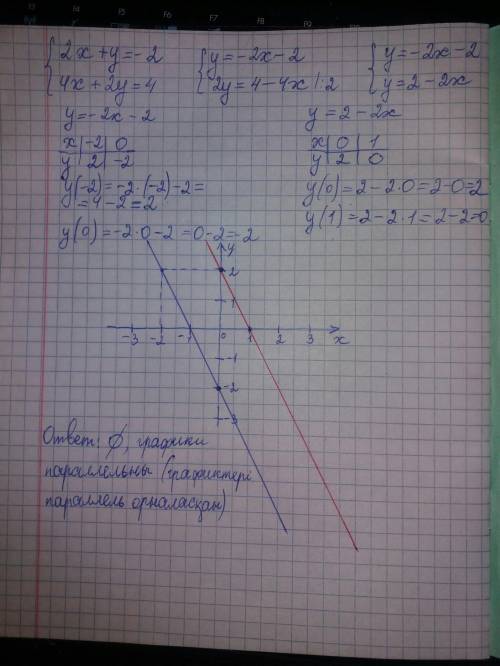 {2x+y=-2 {y=-2x-2 {y=-2x-2
{4x+2y=4 {2y=4-4x |:2 {y=2-2x
y=-2x-2 y=2-2x
x | -2 | 0 x | 0 | 1
y | 2 | -2 y | 2 | 0
y(-2)=-2·(-2)-2= y(0)=2-2·0=2-0=2
=4-2=2 y(1)=2-2·1=2-2=0
y(0)=-2·0-2=0-2=-2
y
2
1
-3 -2 -1 0 1 2 3 x
-1
-2
-3
Ответ: ∅, графики
параллельны (графиктері
параллель орналасқан)